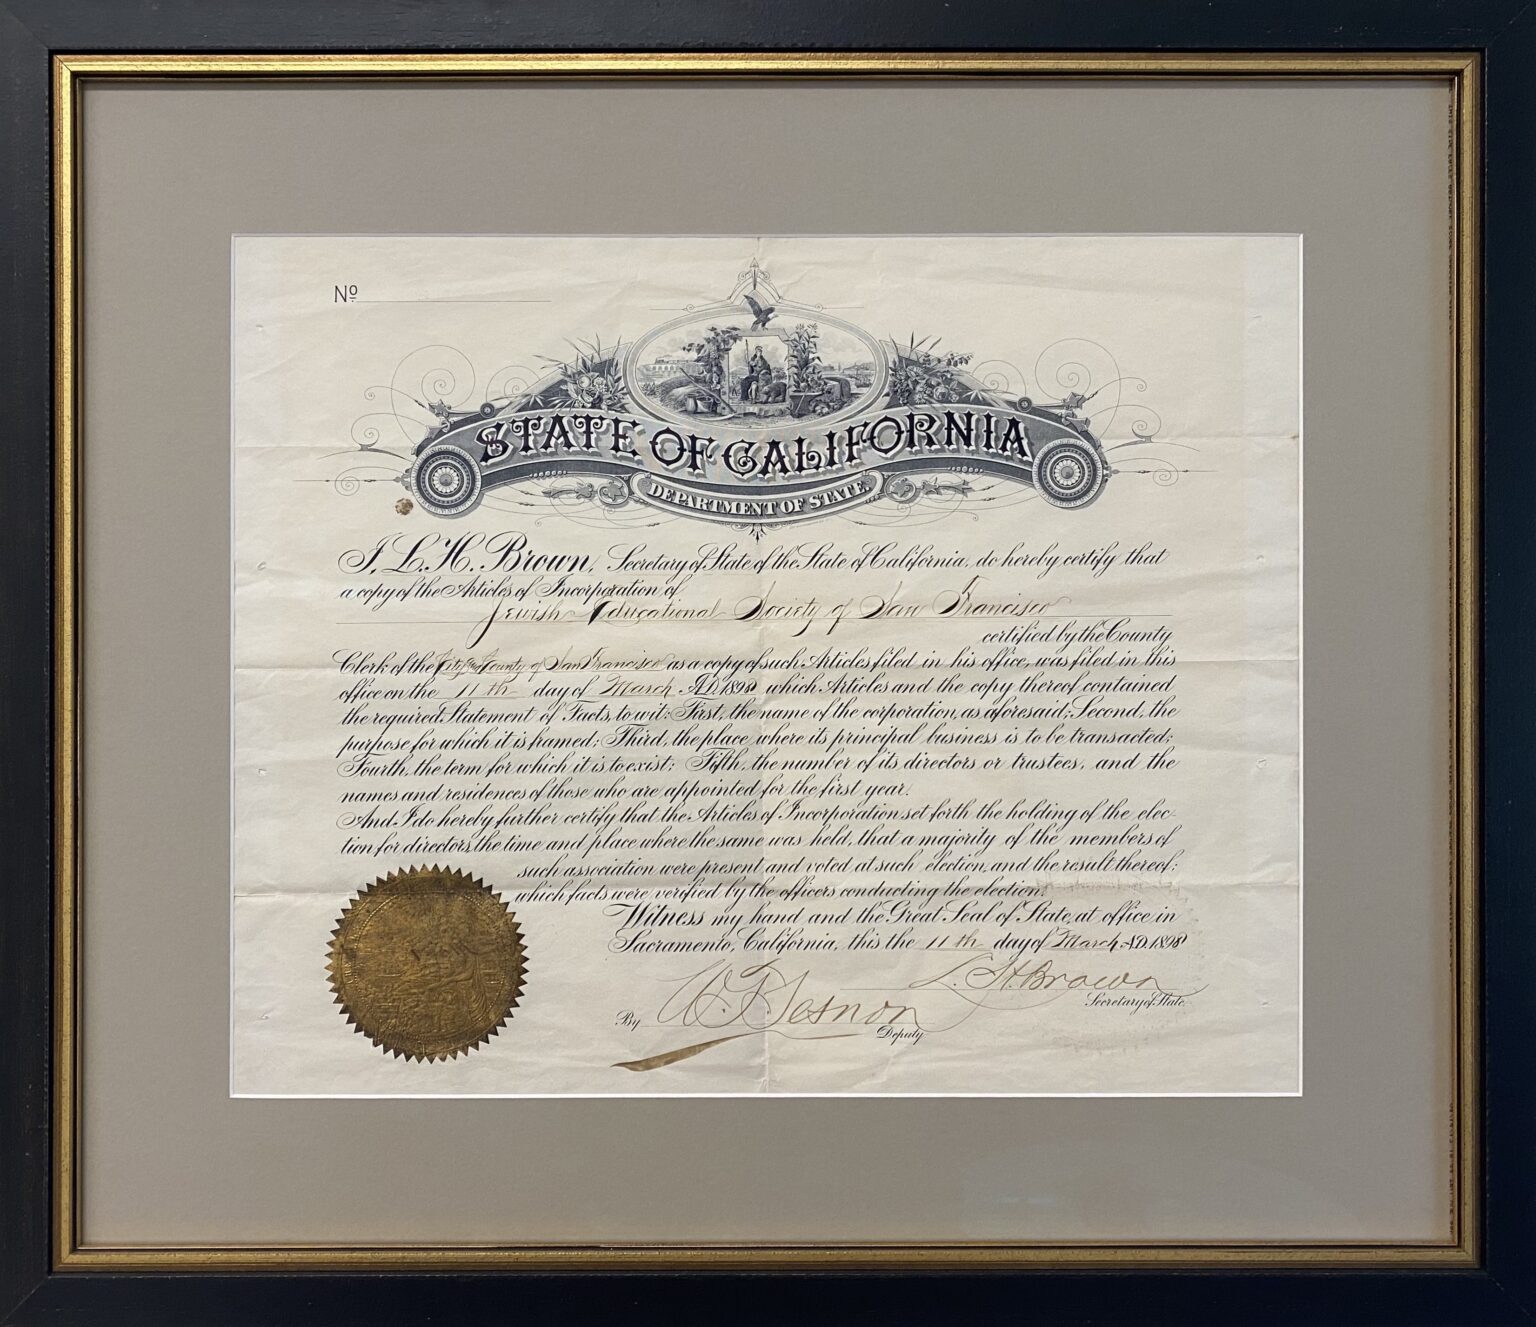 No
STATE OF CALIFORNIA
DEPARTMENT OF STATE.
I, L. H. Brown, Secretary of State of the State of California, do hereby certify that
a copy of the Articles of Incorporation of
Jewish Educational Society of San Francisco
certified by the County
Clerk of the City & County of San Francisco as a copy of such Articles filed in his office, was filed in this
office on the 11th day of March A.D. 1898 which Articles and the copy thereof contained
the required Statement of Facts, to wit: First, the name of the corporation, as aforesaid; Second, the
purpose for which it is framed; Third, the place where its principal business is to be transacted;
Fourth, the term for which it is to exist; Fifth, the number of its directors or trustees, and the
names and residences of those who are appointed for the first year.
And I do hereby further certify that the Articles of Incorporation set forth the holding of the elec-
tion for directors, the time and place where the same was held, that a majority of the members of
such association were present and voted at such election, and the result thereof;
which facts were verified by the officers conducting the election.
Witness my hand and the Great Seal of State, at office in
Sacramento, California, this the 11th day of March, A.D. 1898
L. H. Brown
Secretary of State.
By
Deputy